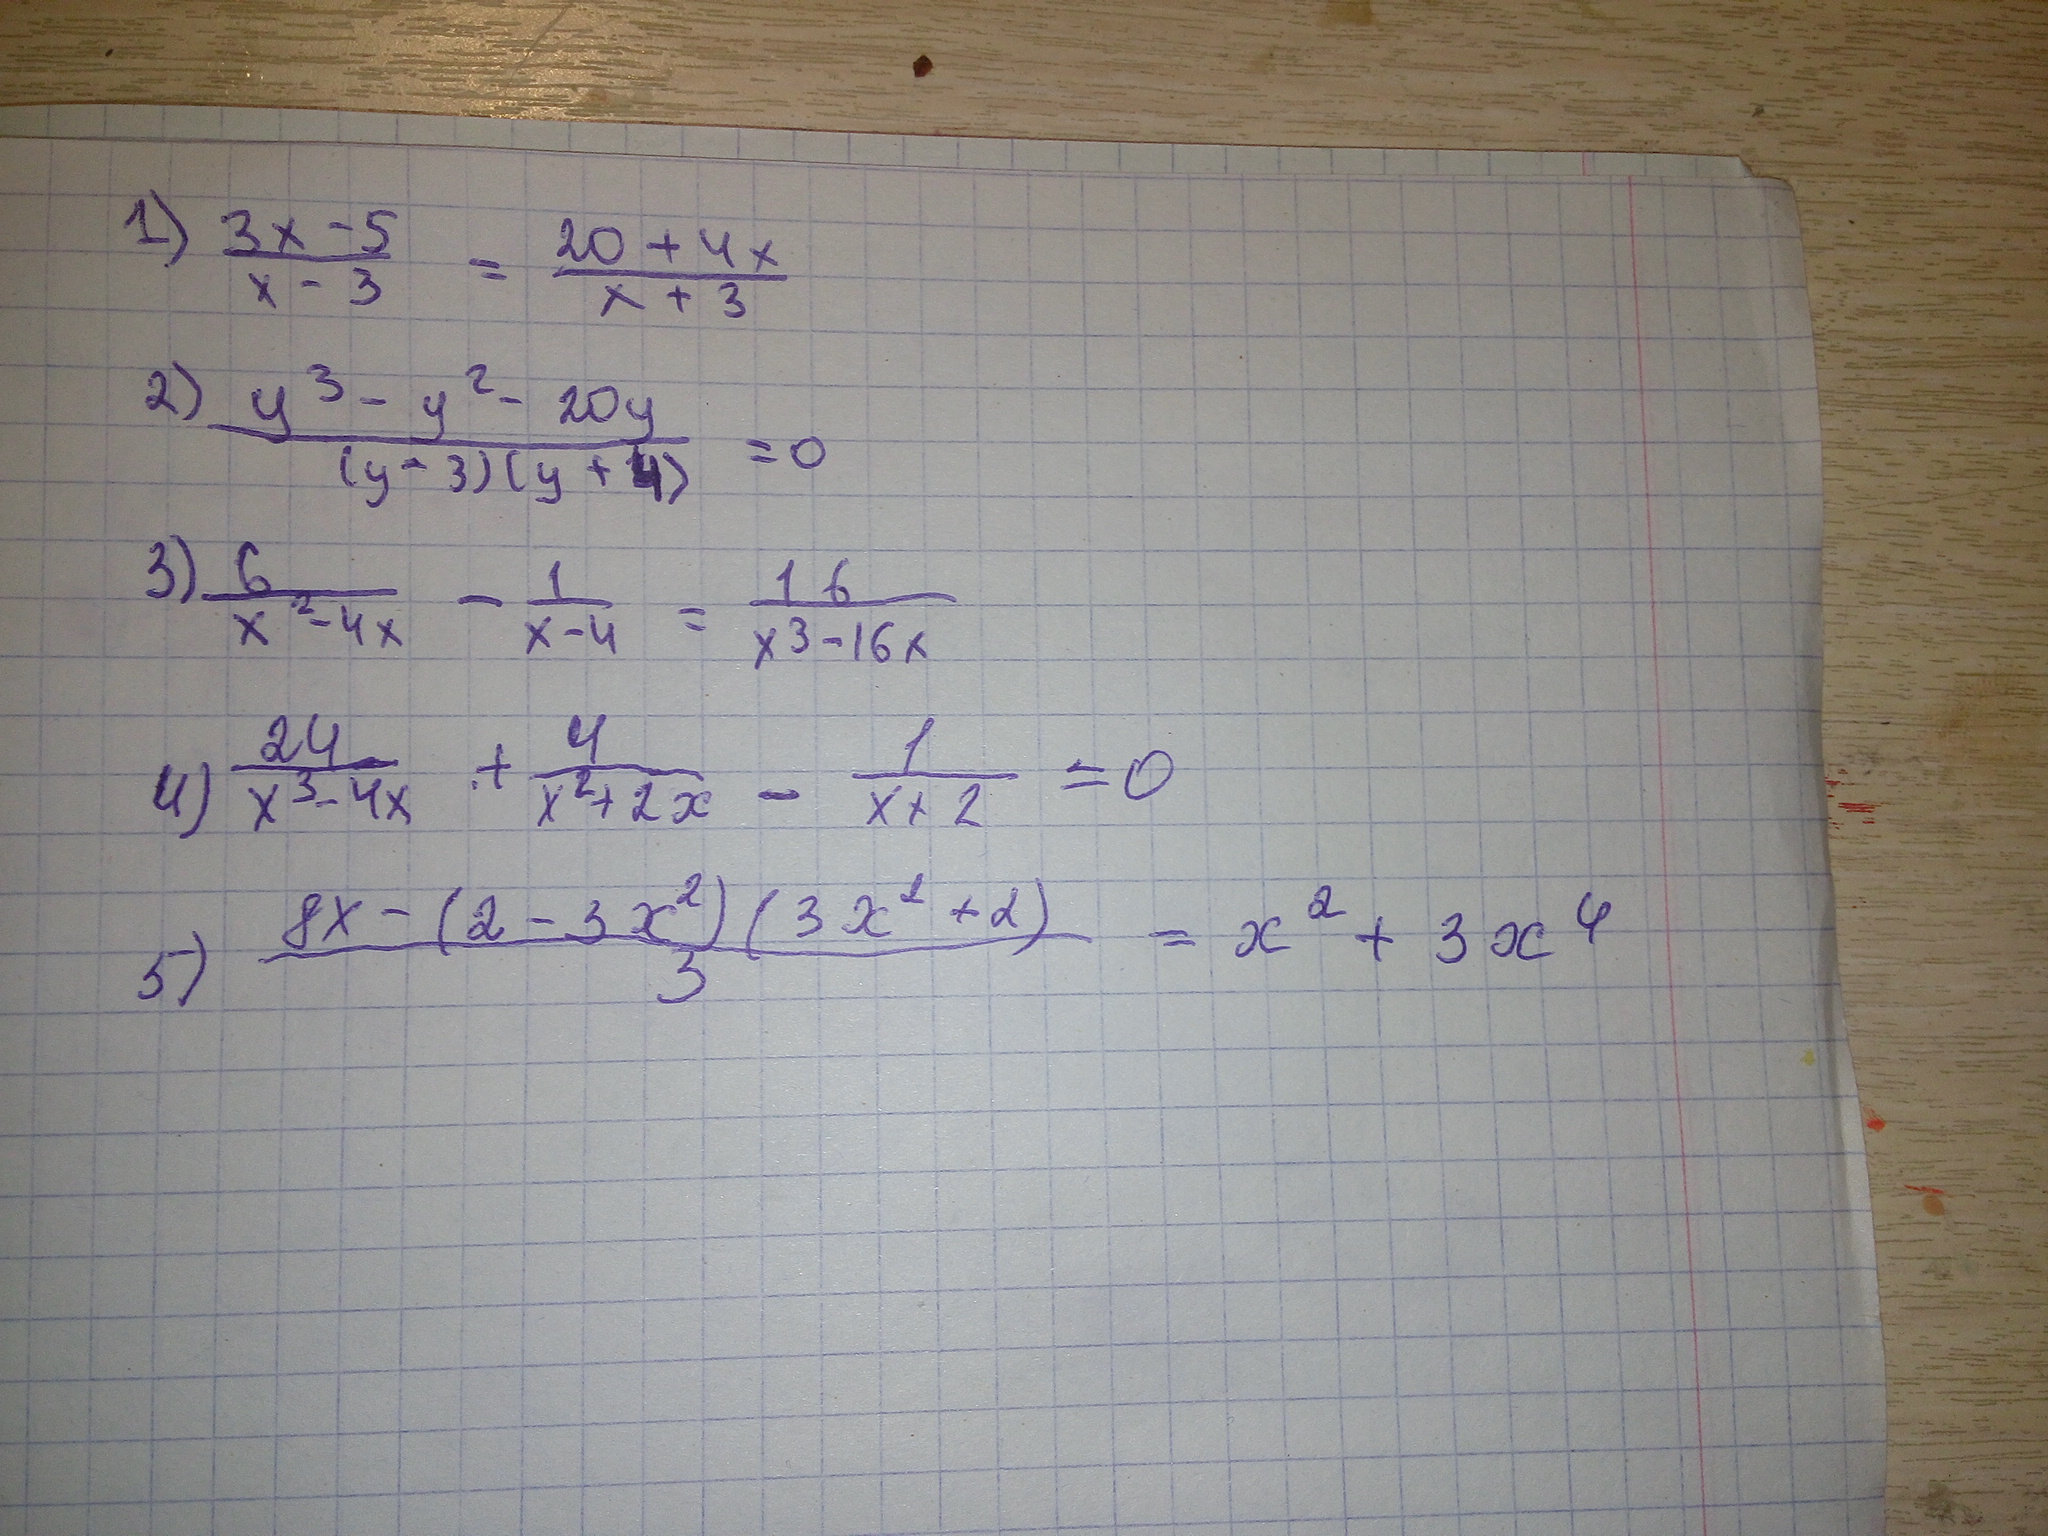 1) (3x-5)/(x-3) = (20+4x)/(x+3)
2) (y³-y²-20y)/((y-3)(y+4)) =0
3) 6/(x²-4x) - 1/(x-4) = 16/(x³-16x)
4) 24/(x³-4x) + 4/(x²+2x) - 1/(x+2) =0
5) (8x-(2-3x²)(3x²+2))/3 = x²+3x⁴